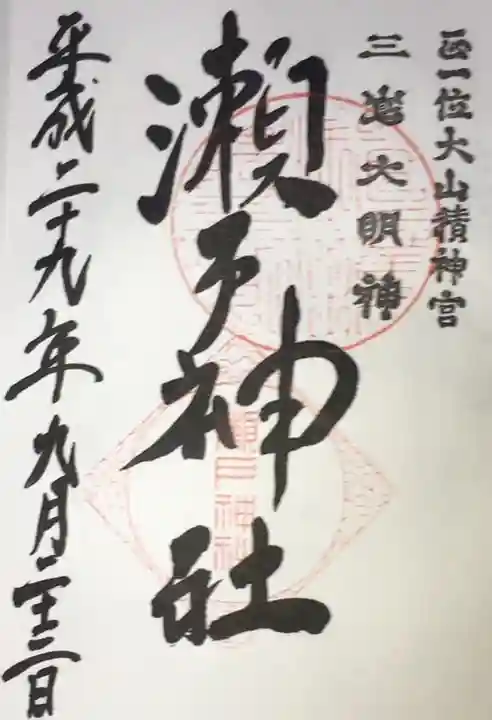 正一位大山積神宮
三嶌大明神
瀬戸神社
平成二十九年九月二十三日
瀬戸神社